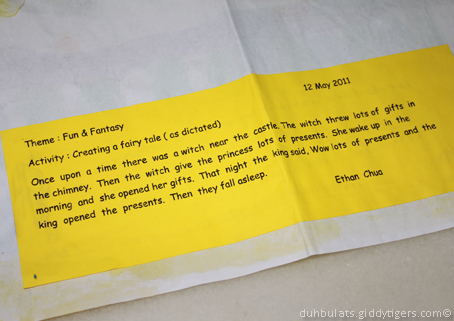 12 May 2011
Theme : Fun & Fantasy
Activity : Creating a fairy tale ( as dictated)
Once upon a time there was a witch near the castle. The witch threw lots of gifts in
the chimney. Then the witch give the princess lots of presents. She wake up in the
morning and she opened her gifts. That night the king said, Wow lots of presents and the
king opened the presents. Then they fall asleep.
Ethan Chua
duhbulats.giddytigers.com©